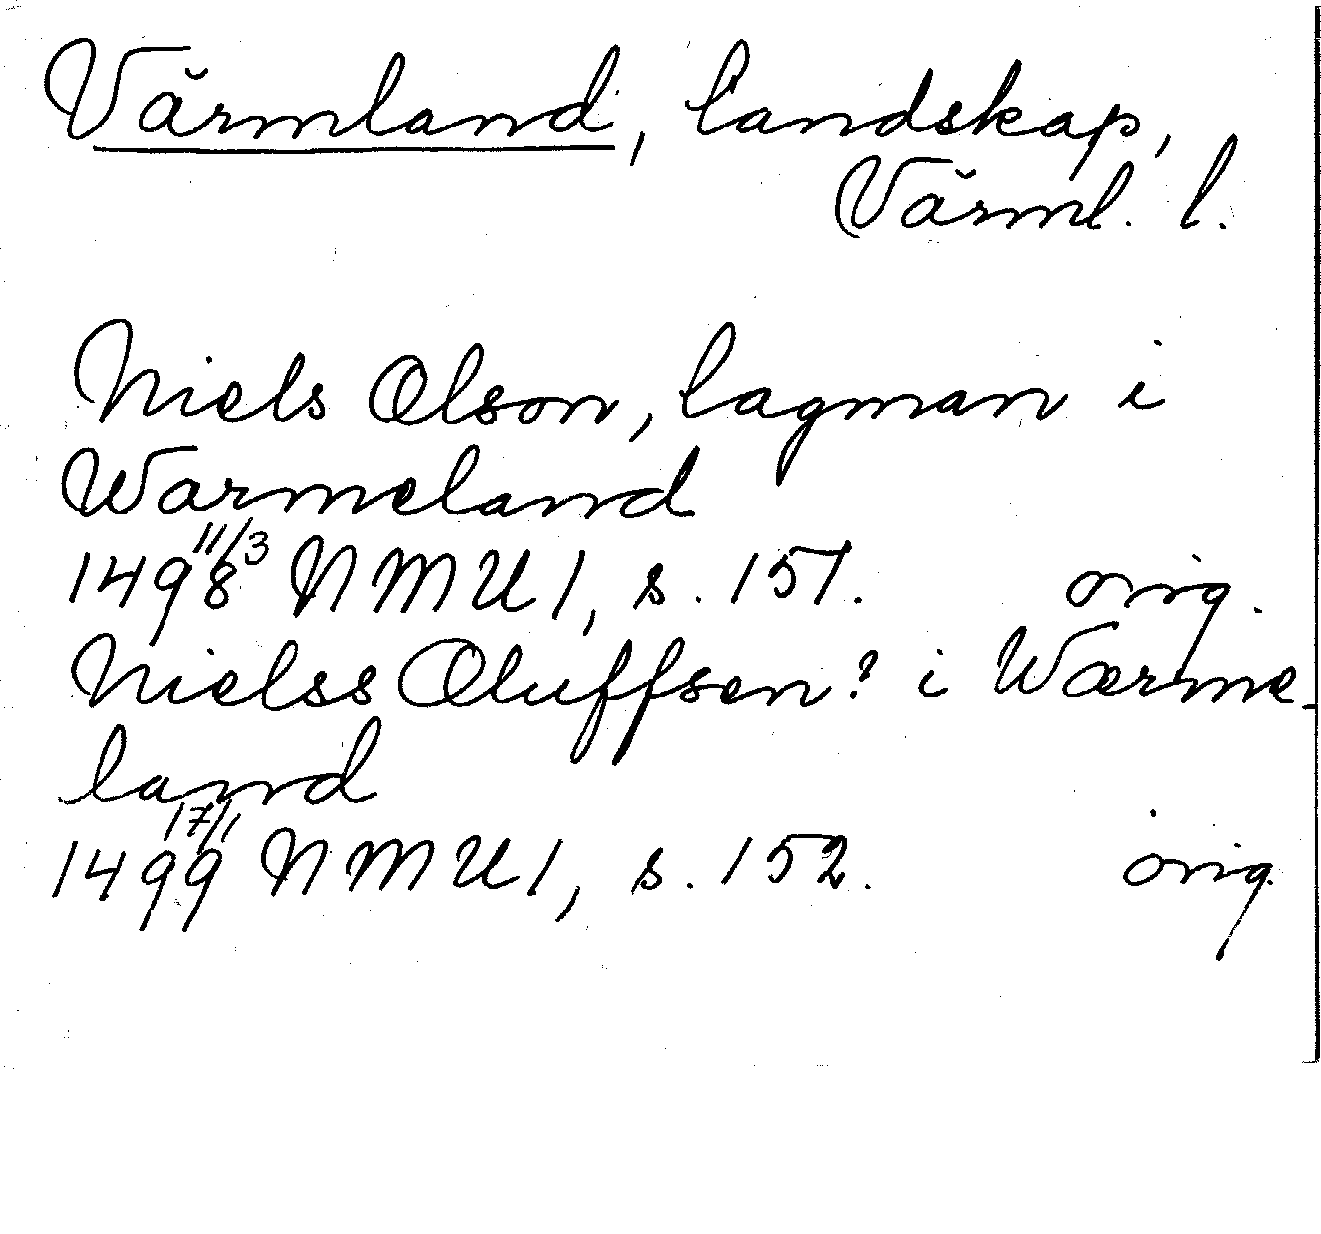 Värmland, landskap,
Värml. l.
Niels Olson, lagman i
Warmeland
1498 11/3 NMU 1, s. 151. orig.
Nielss Oluffsen? i Wærme-
land
1499 17/1 NMU 1, s. 152. orig.